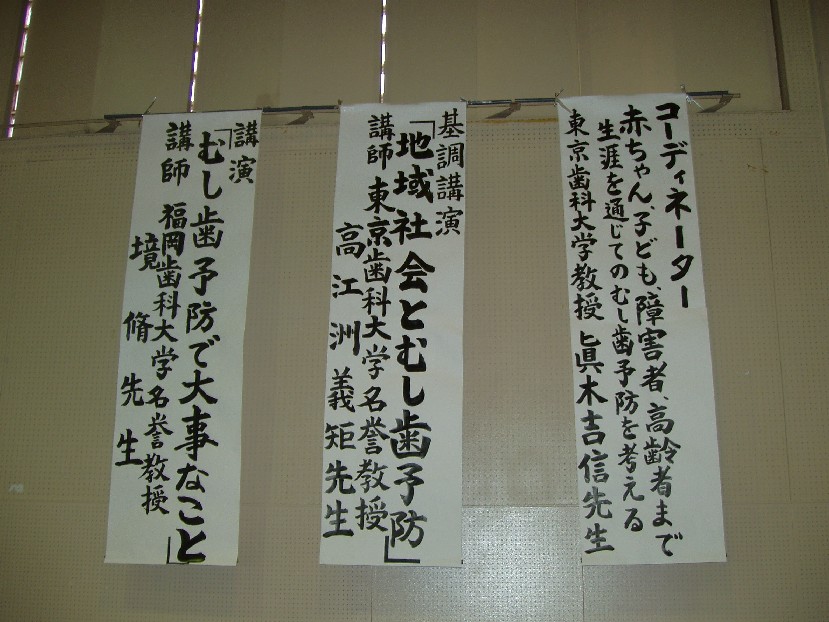 コーディネーター
赤ちゃん、子ども、障害者、高齢者まで
生涯を通じてのむし歯予防を考える
東京歯科大学教授 眞木吉信先生
基調講演
「地域社会とむし歯予防」
講師 東京歯科大学名誉教授
高江洲義矩先生
講演
「むし歯予防で大事なこと」
講師 福岡歯科大学名誉教授
境 脩先生